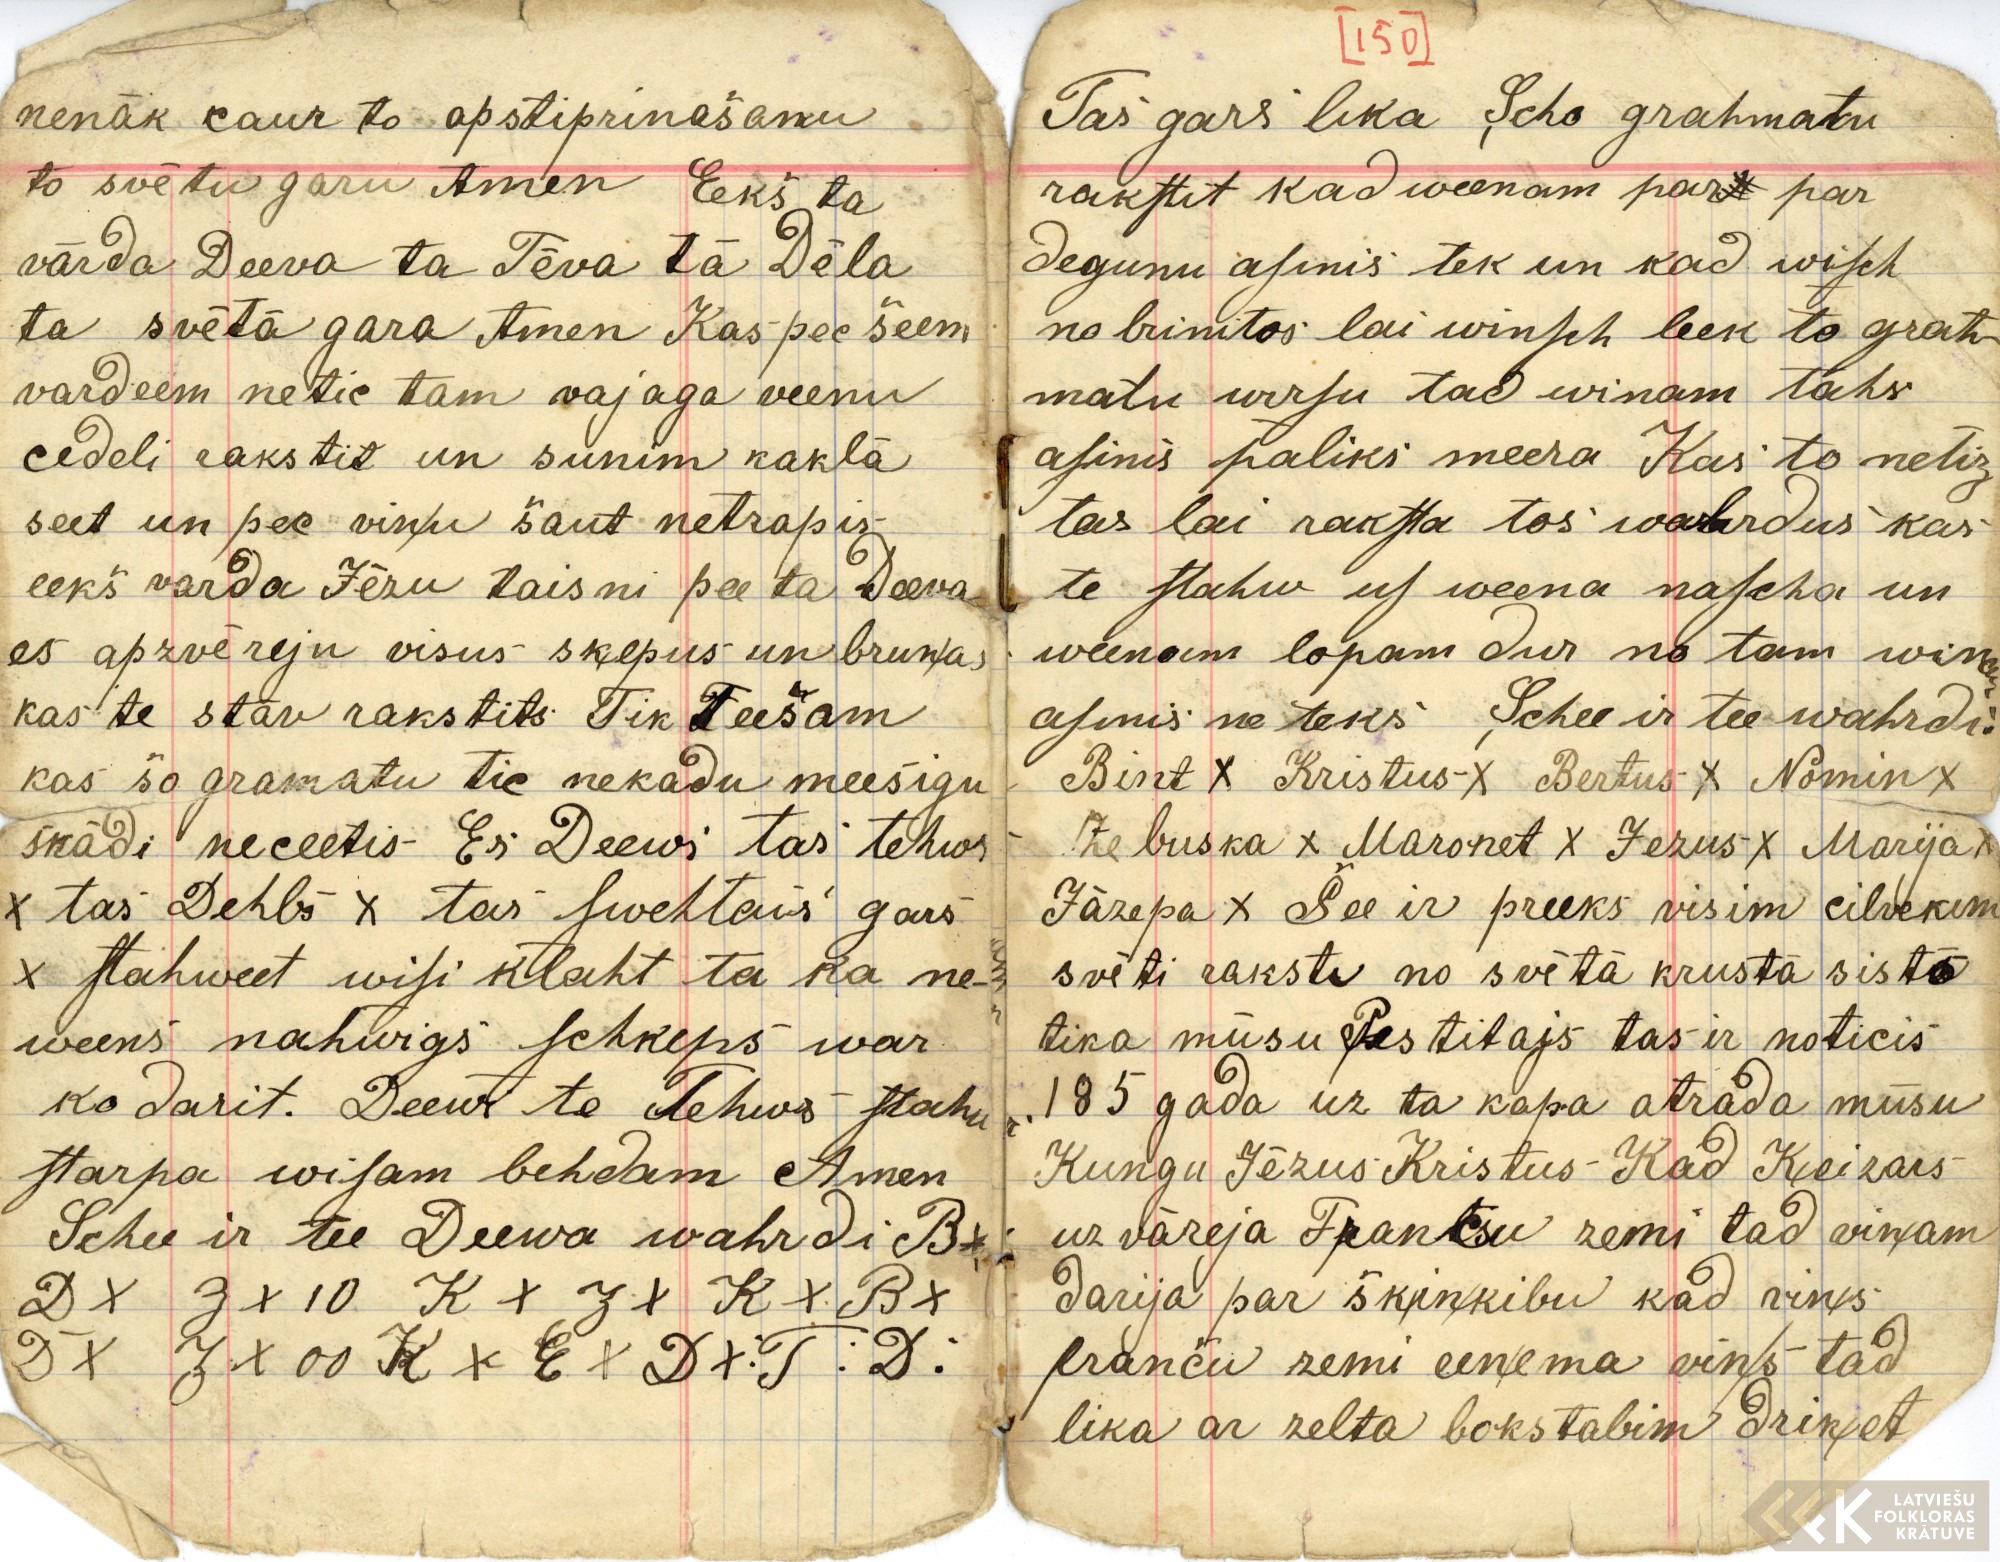 nenāk caur to apstiprinašanu
to svētu garu Amen Eekš ta
vārda Deeva ta Tēva tā Dēla
ta svētā gara Amen Kas pec šeem
vardeem netic tam vajaga veenu
cedeli rakstit un sunim kaklā
seet un pec viņu šaut netrapis
eekš varda Jēzu taisni pee ta Deeva
es apzvēreju visus šķepus un bruņas
kas te stāv rakstits Tik Teešam
kas šo gramatu tic nekādu meesigu
skādi neceetis Es Deews tas tehws
x tas Dehls x tas ſwehtais gars
x ſtahweet wiſi klaht tā ka ne-
weens nahwigs ſchķeps war
ko darit. Deews te Tehws ſtahw
ſtarpa wiſam behdam Amen
Schee ir tee Deewa wahrdi B x
D x Z x 10 K x Z x K x B x
D x Z x 00 K x E x D x : T : D :
[150]
Tas gars lika Scho grahmatu
rakſtit kad weenam par
degunu aſinis tek un kad wiſch
no brinitos lai winſch leek to grah-
matu wirſu tad winam tahs
aſinis paliks meera Kas to netiz
tas lai rakſta tos wahrdus kas
te ſtahw uſ weena naſcha un
weenam lopam dur no tam winam
aſinis ne teks Schee ir tee wahrdi:
Bint x Kristus x Bertus x Nomin x
Zebuska x Maronet x Jezus x Marija x
Jāzepa x Šee ir preeks visim cilvekim
svēti raksti no svētā krustā sistā
tika mūsu Pestitajs tas ir noticis
185 gada uz ta kapa atrāda mūsu
Kungu Jēzus Kristus Kad Ķeizars
uzvāreja Francsu zemi tad viņam
darija par šķinķibu kad viņs
franču zemi eeņema viņš tad
lika ar zelta bokstabim driķet
LATVIEŠU
FOLKLORAS
KRĀTUVE